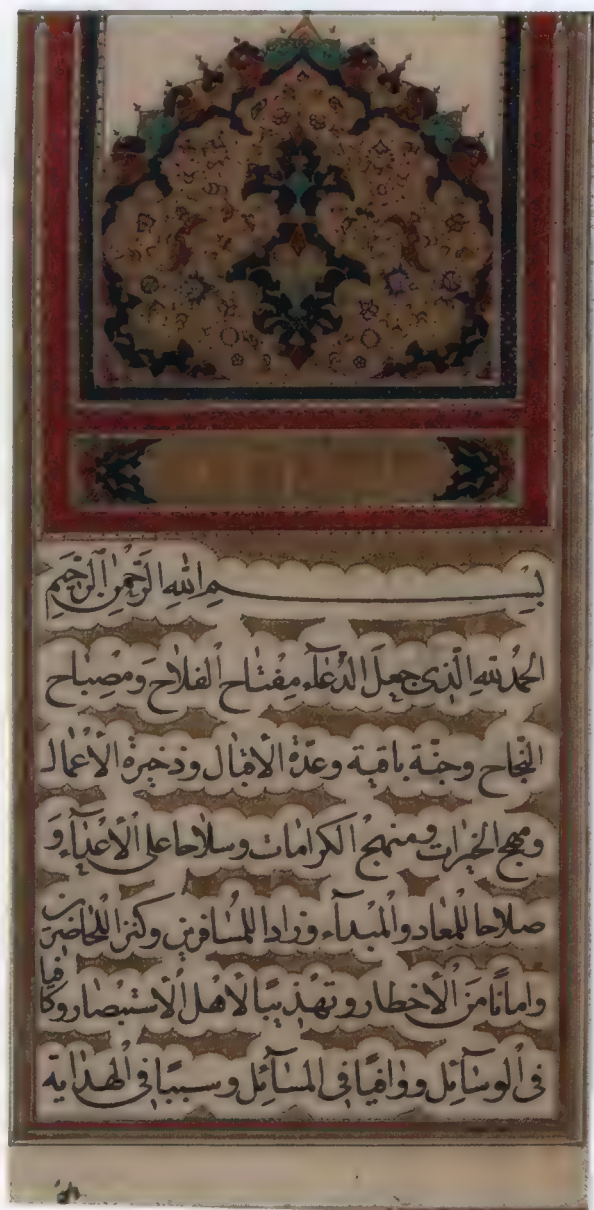 بِسْمِ اللهِ الرَّحْمٰنِ الرَّحِيْمِ
الحَمْدُ للهِ الَّذِى جَعَلَ الدُّعَآءَ مِفْتٰاحَ الْفَلاٰحِ وَمِصْبٰاحَ
النَّجٰاحِ وجنّة باقية وعدّة الاقبال وذخيرة الأعمال
ومهج الخيرات ومنهج الكرامات وسلاحا على الأعدآء وَ
صلاحا للمعاد والمبدآء وزادا للمسافرين وكنزا للحاضرين
وامانًا مَنَ الأخطار وتهذيبًا لأهل الاستبصار وكافيا
فى الوسآئل ووافيًا فى المسآئل وسببًا فى الهداية